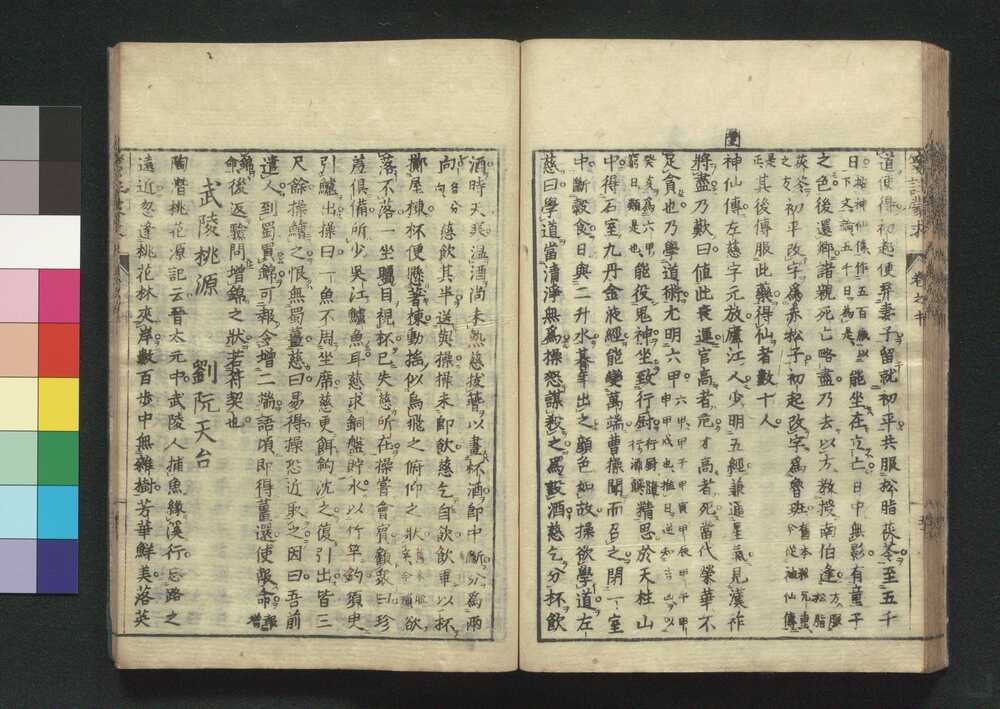 道使得初起便弃妻子留就初平共服松脂茯苓至五千
日能坐在立亡日中無影有童子
之色後還鄉諸親死亡略盡乃去以方教授南伯逢
初平改字爲赤松子初起改字爲魯班
其後傳服此藥得仙者數十人
神仙傳左慈字元放廬江人少明五經兼通星氣見漢祚
將盡乃歎曰値此衰運官高者危才高者死當代榮華不
足貪也乃學道術尤明六甲
能役鬼神坐致行厨精思於天柱山
中得石室九丹金液經能變萬端曹操聞而召之閉一室
中斷穀食日與二升水暮年出之顔色如故操欲學道左
慈曰學道當清淨無爲操怒謀殺之爲設酒慈乞分杯飲
酒時天寒溫酒尚未熱慈拔簪以畫杯酒即中斷分爲兩
向慈飲其半送與操操未即飲慈乞自飲飲畢以杯
擲屋棟杯便懸著棟動搖似鳥飛之俯仰之狀欲
落不落一坐矚目視杯已失慈所在操嘗會賓顧衆曰珍
羞俱備所少吳江鱸魚耳慈求銅盤貯水以竹竿釣須臾
引鱸出操曰一魚不周坐席慈更餌鉤沈之復引出皆三
尺餘操鱠之恨無蜀薑慈曰易得操恐近取之因曰吾前
遣人到蜀買錦可報令增二端語頃即得薑還使報命
後返驗問增錦之狀若符契也
武陵桃源 劉阮天台
陶潜桃花源記云晉太元中武陵人捕魚緣溪行忘路之
遠近忽逢桃花林夾岸數百步中無雜樹芳華鮮美落英